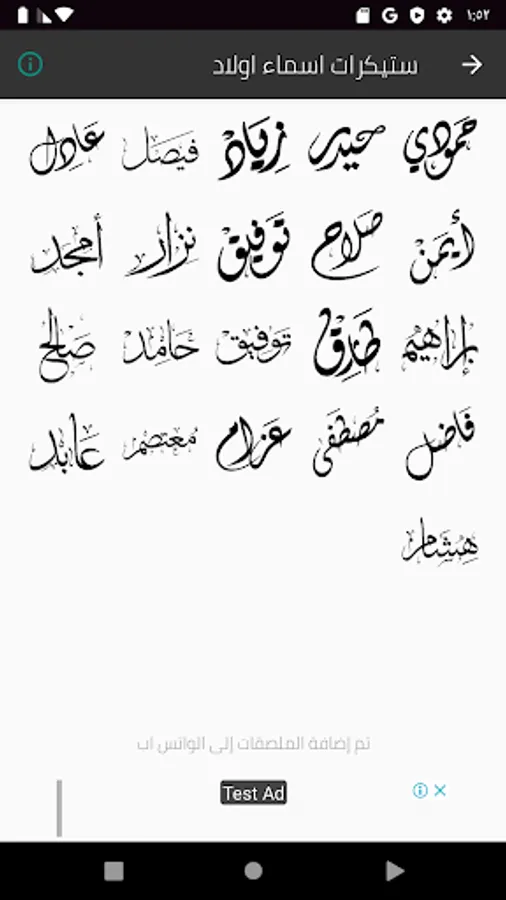 ١:٥٢
ستيكرات اسماء اولاد
حمودي حيدر زياد فيصل عادل
أيمن صلاح توفيق نزار أمجد
إبراهيم طارق توفيق حامد صالح
فاضل مصطفى عزام معتصم عابد
هشام
تم إضافة الملصقات إلى الواتس اب
Test Ad